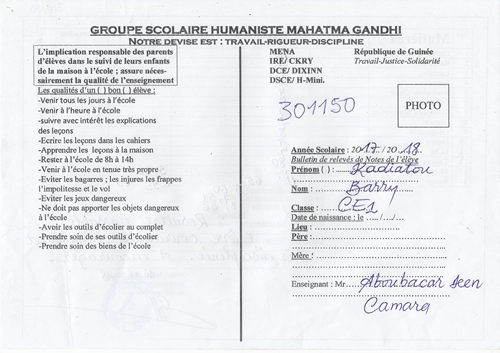 GROUPE SCOLAIRE HUMANISTE MAHATMA GANDHI
NOTRE DEVISE EST : TRAVAIL-RIGUEUR-DISCIPLINE
L'implication responsable des parents
d'élèves dans le suivi de leurs enfants
de la maison à l'école ; assure néces-
sairement la qualité de l'enseignement
Les qualités d'un ( ) bon ( ) élève :
-Venir tous les jours à l'école
-Venir à l'heure à l'école
-suivre avec intérêt les explications
des leçons
-Ecrire les leçons dans les cahiers
-Apprendre les leçons à la maison
-Rester à l'école de 8h à 14h
-Venir à l'école en tenue très propre
-Eviter les bagarres ; les injures les frappes
l'impolitesse et le vol
-Eviter les jeux dangereux
-Ne doit pas apporter les objets dangereux
à l'école
-Avoir les outils d'écolier au complet
-Prendre soin de ses outils d'écolier
-Prendre soin des biens de l'école
MENA
IRE/ CKRY
DCE/ DIXINN
DSCE/ H-Mini.
République de Guinée
Travail-Justice-Solidarité
301150
PHOTO
Année Scolaire : 2017 /2018
Bulletin de relevés de Notes de l'élève
Prénom ( ) : Kadiatou
Nom : Barry
Classe : CE1
Date de naissance : le ..../..../....
Lieu :
Père :
Mère :
Enseignant : Mr Aboubacar
Camara